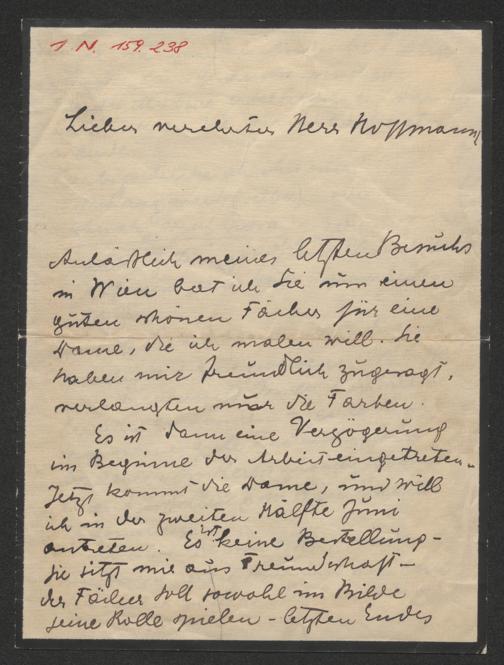 I. N. 159.238
Lieber verehrter Herr Hoffmann,
Anläßlich meines letzten Besuchs
in Wien bat ich Sie um einen
guten schönen Fächer für eine
Dame, die ich malen will. Sie
haben mir freundlich zugesagt,
verlangten nur die Farben.
Es ist dann eine Verzögerung
im Beginne der Arbeit eingetreten.
Jetzt kommt die Dame, und will
ich in der zweiten Hälfte Juni
antreten. Es ist keine Bestellung –
sie sitzt mir aus Freundschaft –
der Fächer soll sowohl im Bilde
seine Rolle spielen – letzten Endes